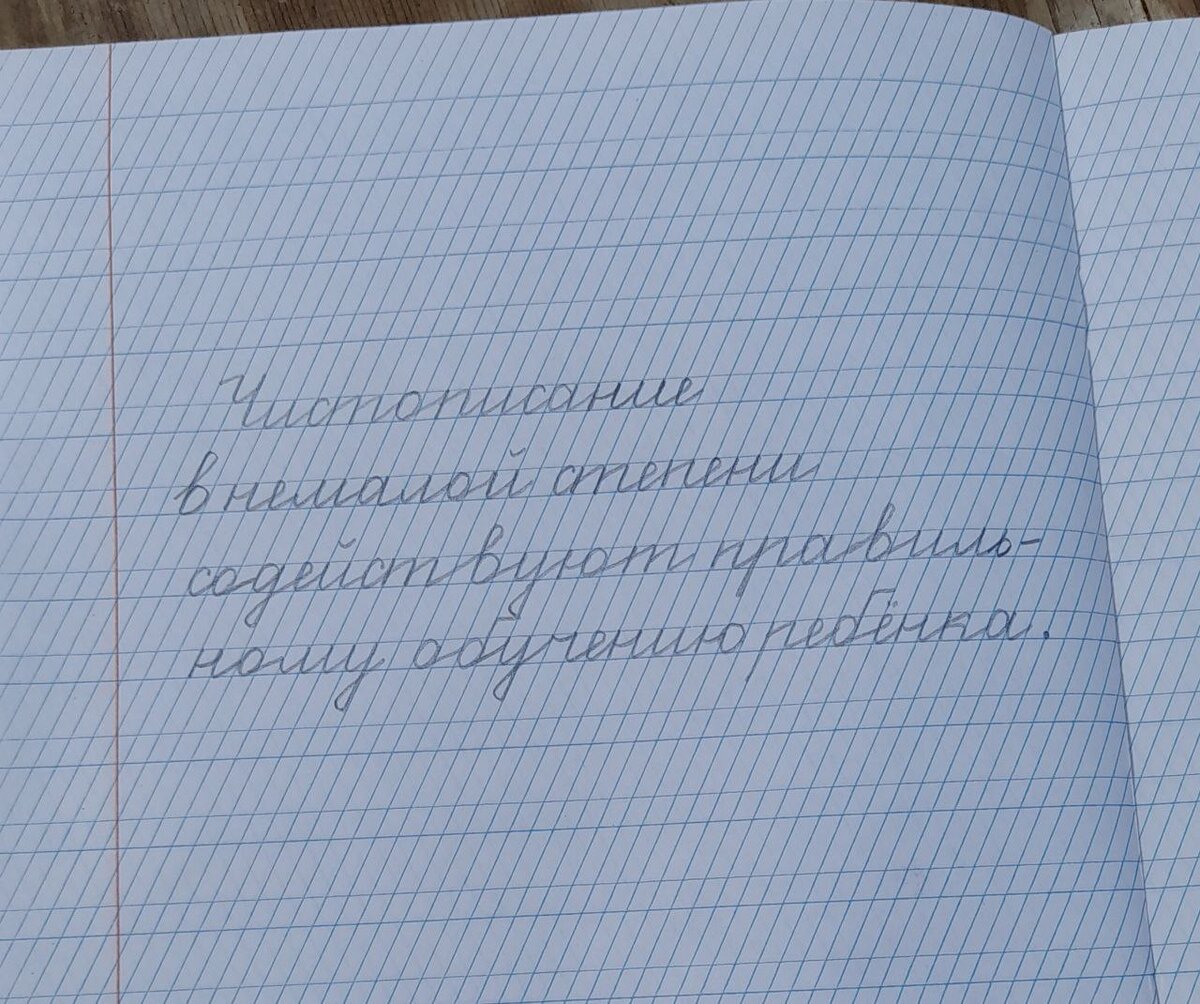 Чистописание
в немалой степени
содействуют правиль-
ному обучению ребёнка.